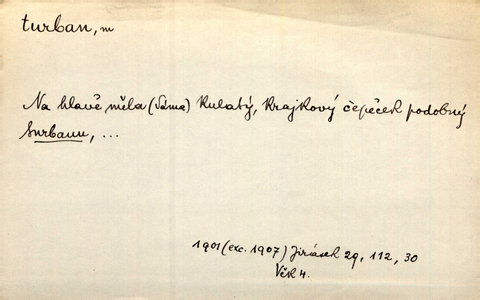 turban, m
Na hlavě měla (dáma) kulatý, krajkový čepeček podobný
turbanu, ...
1901 (exc. 1907) Jirásek 29, 112, 30
Věk 4.